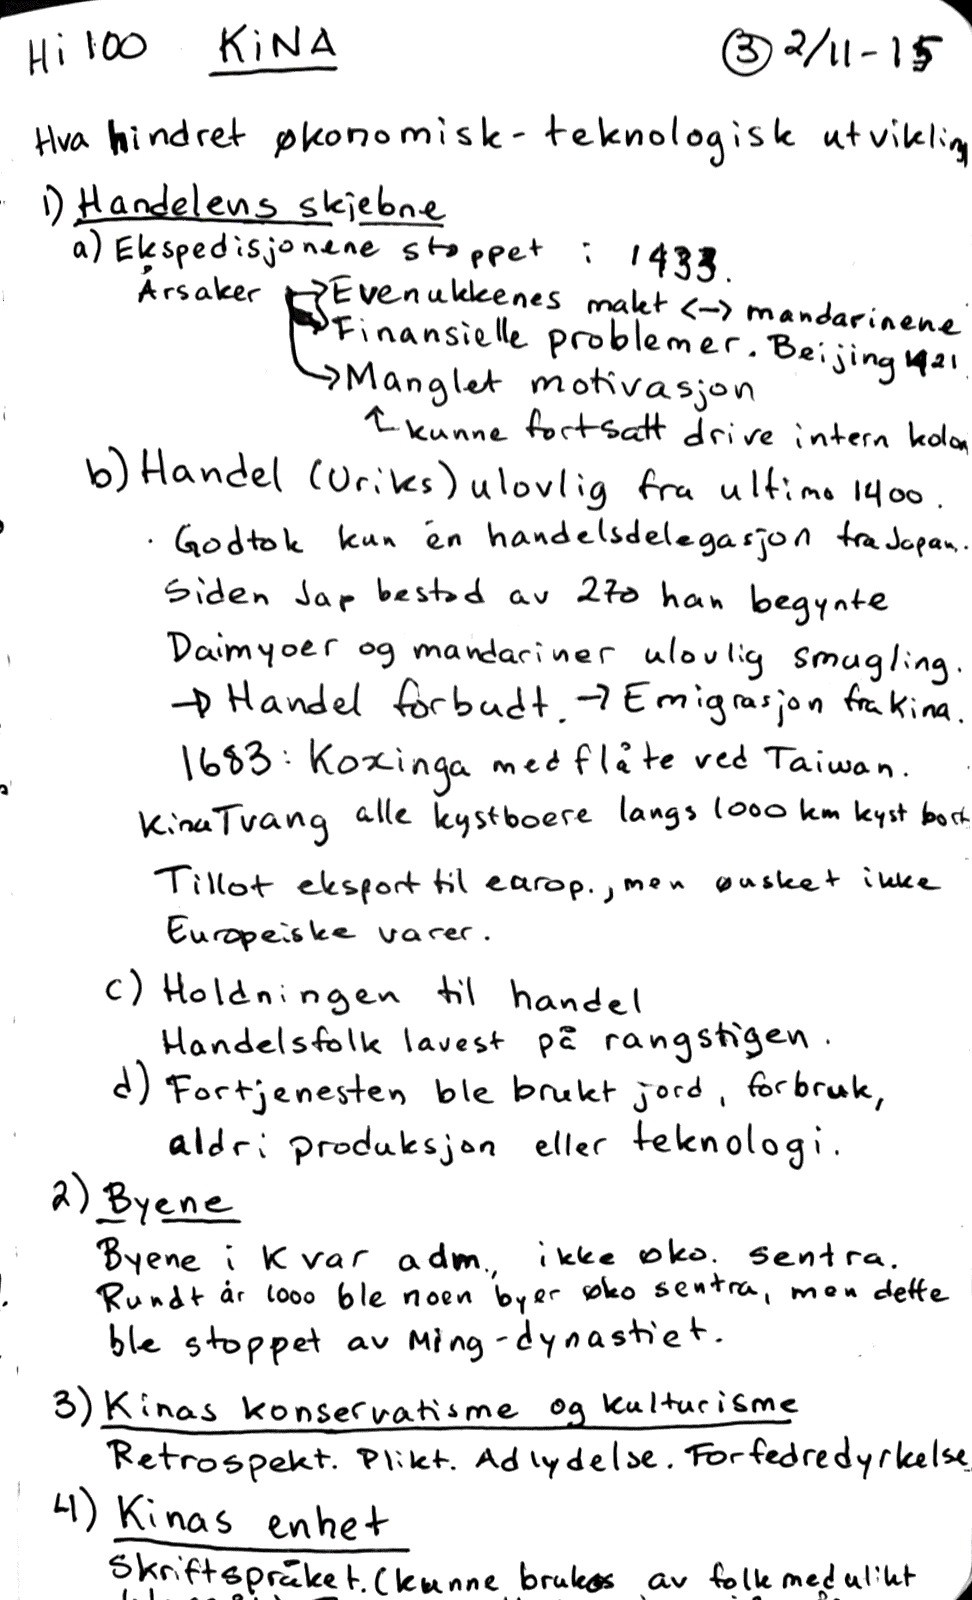 Hi 100 KiNA ③ 2/11-15
Hva hindret økonomisk-teknologisk utvikling
1) Handelens skjebne
a) Ekspedisjonene stoppet i 1433.
Årsaker → Evenukkenes makt <-> mandarinene
→ Finansielle problemer. Beijing 1421.
→ Manglet motivasjon
↑ kunne fortsatt drive intern kolon
b) Handel (Uriks) ulovlig fra ultimo 1400.
· Godtok kun én handelsdelegasjon fra Japan.
Siden Jap bestod av 270 han begynte
Daimyoer og mandariner ulovlig smugling.
→ Handel forbudt. → Emigrasjon fra Kina.
1683: Koxinga med flåte ved Taiwan.
Kina Tvang alle kystboere langs 1000 km kyst bort
Tillot eksport til europ., men ønsket ikke
Europeiske varer.
c) Holdningen til handel
Handelsfolk lavest på rangstigen.
d) Fortjenesten ble brukt jord, forbruk,
aldri produksjon eller teknologi.
2) Byene
Byene i K var adm., ikke øko. sentra.
Rundt år 1000 ble noen byer øko sentra, men dette
ble stoppet av Ming-dynastiet.
3) Kinas konservatisme og kulturisme
Retrospekt. Plikt. Adlydelse. Forfedredyrkelse
4) Kinas enhet
Skriftspråket. (kunne brukes av folk med ulikt